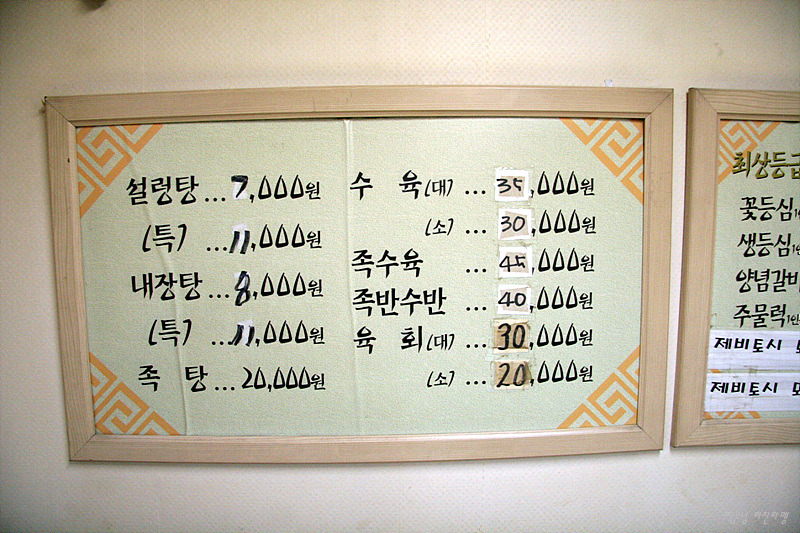 설렁탕...7,000원
(특) ...11,000원
내장탕...8,000원
(특) ...11,000원
족 탕...20,000원
수 육(대) ...35,000원
(소) ...30,000원
족수육 ...45,000원
족반수반 ...40,000원
육 회(대) ...30,000원
(소) ...20,000원
최상등급
꽃등심
생등심
양념갈비
주물럭
제비토시
제비토시